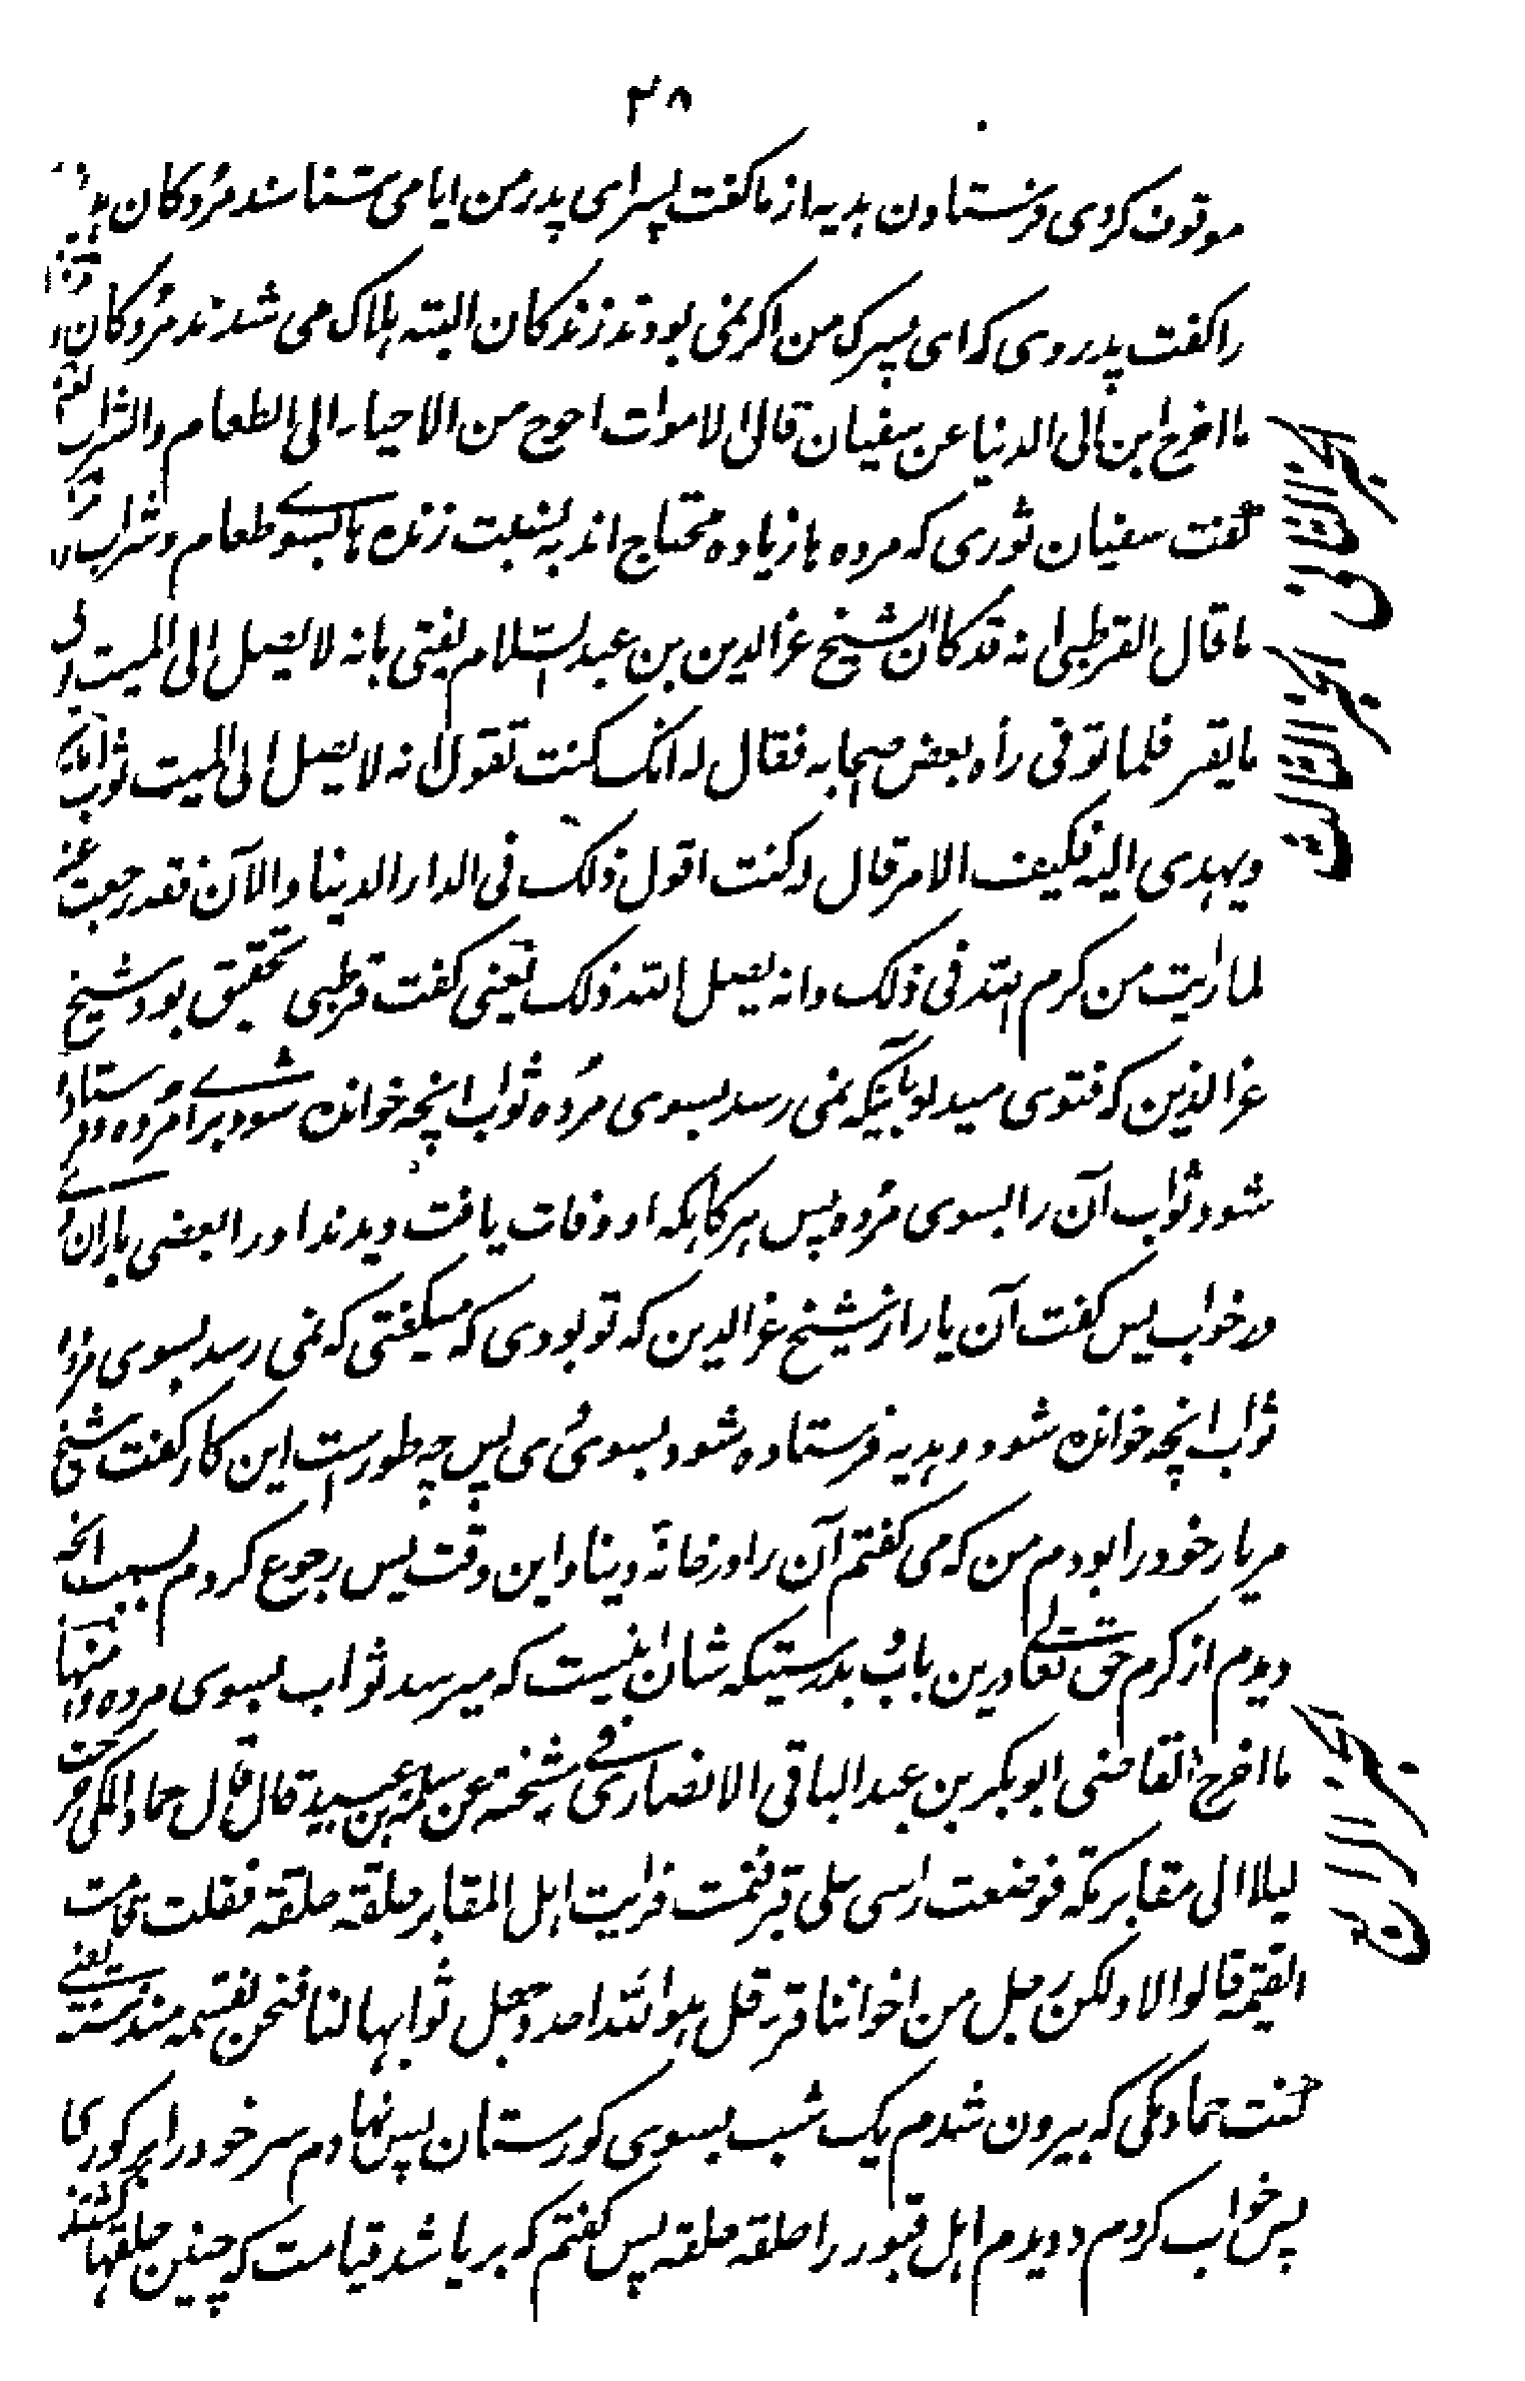 ۳۸
موقوف کردی فرستادن هدیه از ما گفت پسر ای پدر من ایا می شناسند مُردکان
را گفت پدر وی که ای پسرک من اکر نمی بودند زندکان البته هلاک می شدند مُردکان
ما اخرج ابن ابی الدنیا عن سفیان قال الاموات احوج من الاحیاء الی الطعام والشراب
گفت سفیان ثوری که مرده ها زیاده محتاج اند به نسبت زنده ها بسوے طعام و شراب
ما قال القرطبی انه قد کان الشیخ عزالدین بن عبد السلام یفتی بانه لا یصل الی المیت
ما یقرء فلما توفی رأه بعض صحابه فقال له انک کنت تقول انه لا یصل الی المیت ثواب
ویهدی الیه فکیف الامر قال له کنت اقول ذلک فی الدار الدنیا والآن فقد رجعت عنه
لما رایت من کرم الله فی ذلک وانه یصل الیه ذلک یعنی کفت قرطبی تحقیق بود شیخ
عزالدین که فتوی میداد باینکه نمی رسد بسوی مُرده ثواب انچه خوانده شود براے مُرده
شود ثواب آن را بسوی مُرده پس هرکاهکه او وفات یافت دیدند او را بعضی یاران
در خواب پس کفت آن یار از شیخ عزالدین که تو بودی که میکفتی که نمی رسد بسوی
ثواب انچه خوانده شود و هدیه فرستاده شود بسویُ ی پس چه طور است این کار کفت شیخ
مر یار خود را بودم من که می کفتم آن را در خانهٔ دنیا و این وقت پس رجوع کردم بسبب انچه
دیدم از کرم حق تعالے درین باب بدرستیکه شان اینست که میرسد ثواب بسوی مرده
ما اخرج القاضی ابوبکر بن عبد الباقی الانصاری فی مشیخته عن سلمة بن عبید قال قال حماد المکی خرجت
لیلا الی مقابر مکة فوضعت راسی علی قبر فنمت فرایت اهل المقابر حلقة حلقة فقلت قامت
القیمة قالوا لا ولکن رجل من اخواننا قرء قل هو الله احد وجعل ثوابها لنا فنحن نقتسمه منذ سنة یعنے
گفت حماد مکی که بیرون شدم یک شب بسوی کورستان پس نهادم سر خود را بر کوری
پس خواب کردم و دیدم اهل قبور را حلقه حلقه پس کفتم که برپا شد قیامت که چنین حلقها